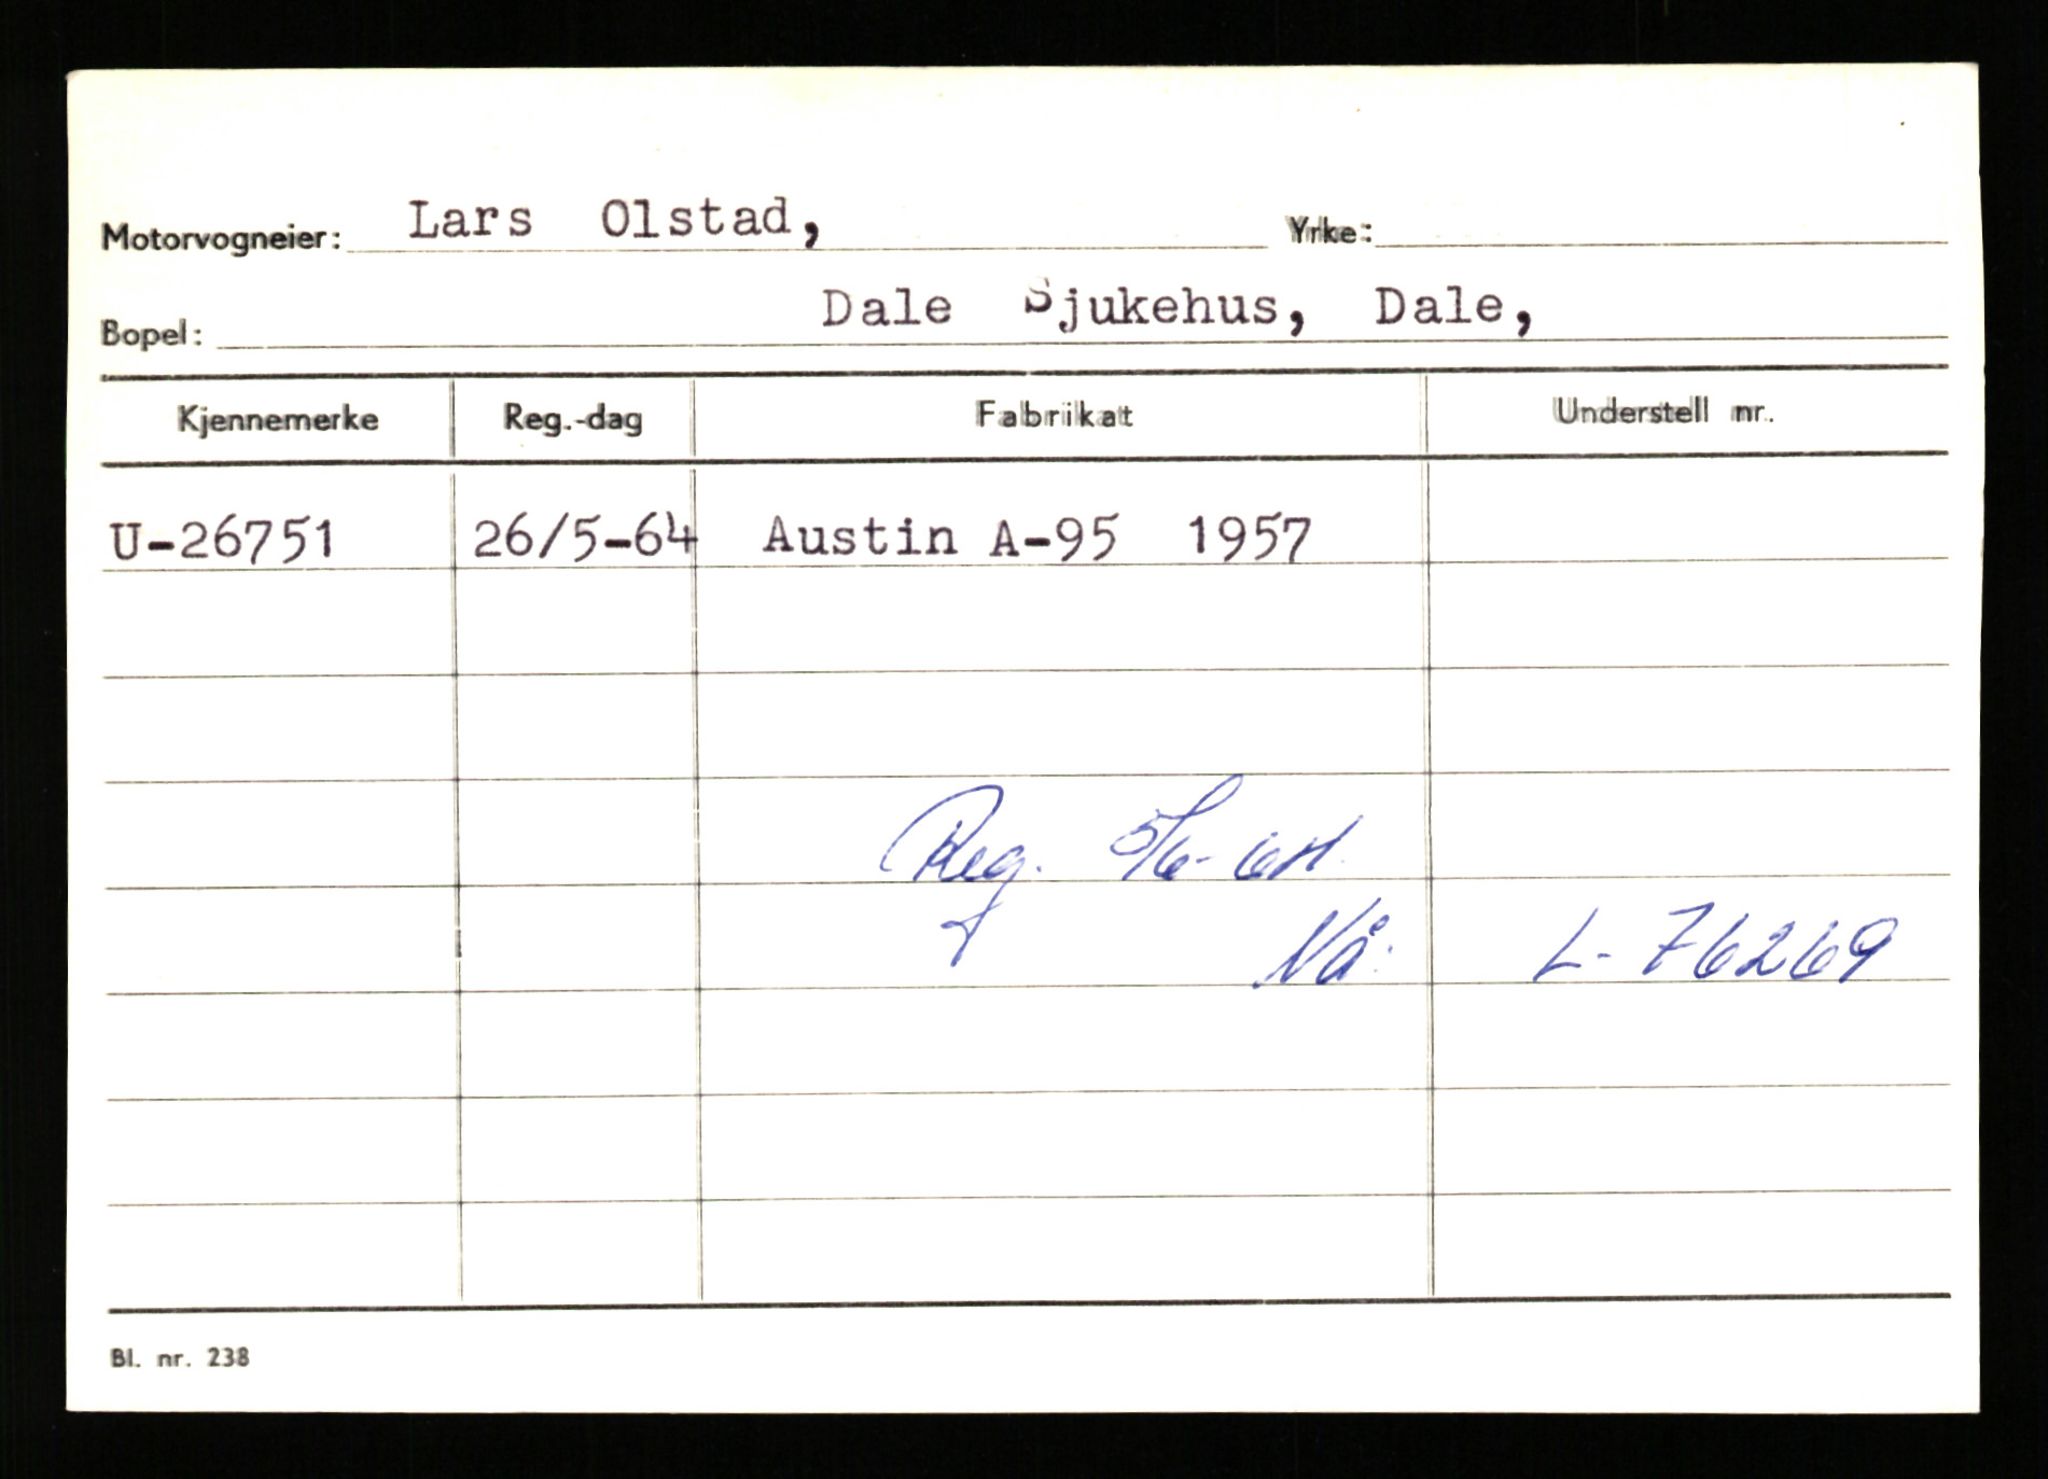 Motorvogneier: Lars Olstad, Yrke:
Bopel: Dale Sjukehus, Dale,
Kjennemerke Reg.-dag Fabrikat Understell nr.
U-26751 26/5-64 Austin A-95 1957
Reg. 5/6-64.
Nå: L-76269
Bl. nr. 238